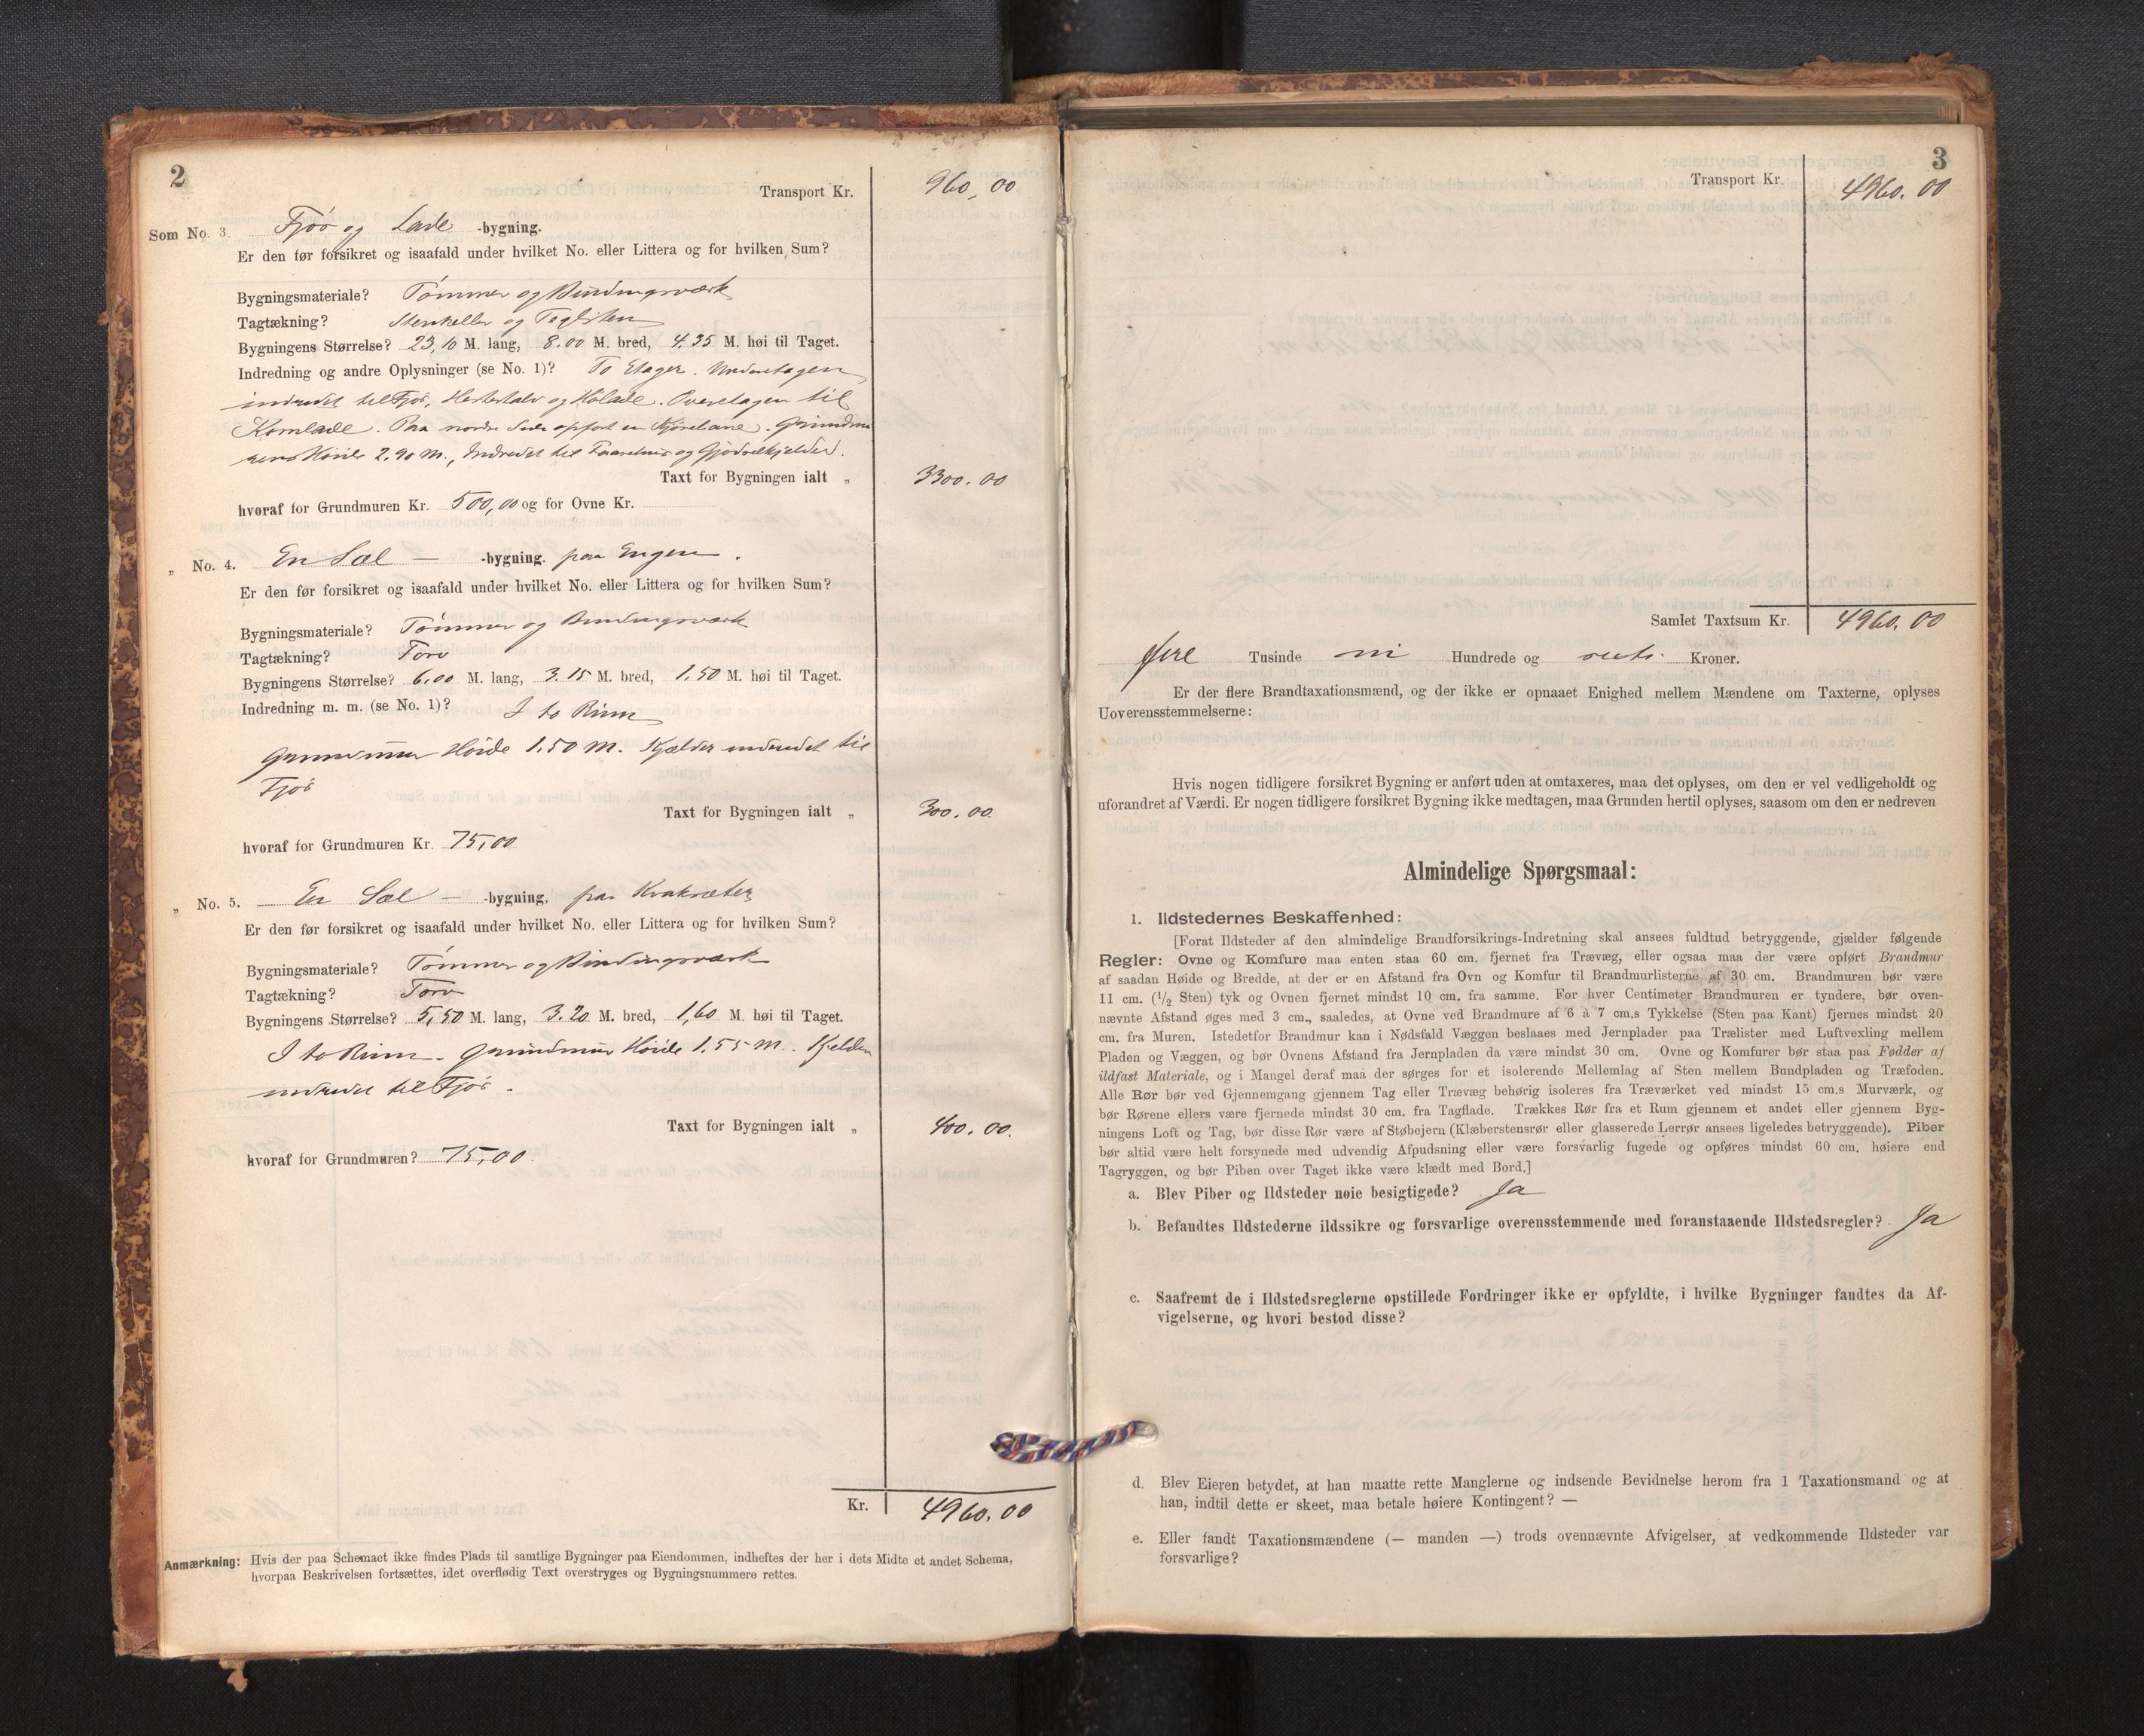 2
Transport Kr. 960,00
Som No. 3. Fjös og Lade -bygning.
Er den før forsikret og isaafald under hvilket No. eller Littera og for hvilken Sum?
Bygningsmateriale? Tömmer og Bindingsværk
Tagtækning? Stenheller og Teglsten
Bygningens Størrelse? 23,10 M. lang, 8.00 M. bred, 4.35 M. høi til Taget.
Indredning og andre Oplysninger (se No. 1)? To Etager. Underetagen
indredet til Fjös, Hestestald og Hölade. Overetagen til
Kornlade. Paa nordre Side opfört en Kjörebane. Grundmu
rens Höide 2.90 M., Indredet til Faarehus og Gjödselkjelder.
Taxt for Bygningen ialt „ 3300.00
hvoraf for Grundmuren Kr. 500,00 og for Ovne Kr.
„ No. 4. En Sæl — -bygning. paa Engen.
Er den før forsikret og isaafald under hvilket No. eller Littera og for hvilken Sum?
Bygningsmateriale? Tömmer og Bindingsværk
Tagtækning? Torv
Bygningens Størrelse? 6,00 M. lang, 3.15 M. bred, 1,50 M. høi til Taget.
Indredning m. m. (se No. 1)? I to Rum
Grundmur Höide 1.50 M. Kjælder indredet til
Fjös
Taxt for Bygningen ialt „ 300.00
hvoraf for Grundmuren Kr. 75,00
„ No. 5. — En Sæl — -bygning, paa
Er den før forsikret og isaafald under hvilket No. eller Littera og for hvilken Sum?
Bygningsmateriale? Tömmer og Bindingsværk
Tagtækning? Torv
Bygningens Størrelse? 5,50 M. lang, 3.20 M. bred, 1,60 M. høi til Taget.
I to Rum. Grundmur Höide 1.55 M. Kjelder
indredet til Fjös.
Taxt for Bygningen ialt „ 400.00.
hvoraf for Grundmuren? 75,00
Kr. 4960.00
Anmærkning: Hvis der paa Schemaet ikke findes Plads til samtlige Bygninger paa Eiendommen, indheftes der her i dets Midte et andet Schema,
hvorpaa Beskrivelsen fortsættes, idet overflødig Text overstryges og Bygningsnummere rettes.
3
Transport Kr. 4960.00
Samlet Taxtsum Kr. 4960.00
Fire Tusinde ni Hundrede og sexti Kroner.
Er der flere Brandtaxationsmænd, og der ikke er opnaaet Enighed mellem Mændene om Taxterne, oplyses
Uoverensstemmelserne:
Hvis nogen tidligere forsikret Bygning er anført uden at omtaxeres, maa det oplyses, om den er vel vedligeholdt og
uforandret af Værdi. Er nogen tidligere forsikret Bygning ikke medtagen, maa Grunden hertil oplyses, saasom om den er nedreven
Almindelige Spørgsmaal:
1. Ildstedernes Beskaffenhed:
[Forat Ildsteder af den almindelige Brandforsikrings-Indretning skal ansees fuldtud betryggende, gjælder følgende
Regler: Ovne og Komfure maa enten staa 60 cm. fjernet fra Trævæg, eller ogsaa maa der være opført Brandmur
af saadan Høide og Bredde, at der er en Afstand fra Ovn og Komfur til Brandmurlisterne af 30 cm. Brandmuren bør være
11 cm. (1/2 Sten) tyk og Ovnen fjernet mindst 10 cm. fra samme. For hver Centimeter Brandmuren er tyndere, bør oven-
nævnte Afstand øges med 3 cm., saaledes, at Ovne ved Brandmure af 6 à 7 cm.s Tykkelse (Sten paa Kant) fjernes mindst 20
cm. fra Muren. Istedetfor Brandmur kan i Nødsfald Væggen beslaaes med Jernplader paa Trælister med Luftvexling mellem
Pladen og Væggen, og bør Ovnens Afstand fra Jernpladen da være mindst 30 cm. Ovne og Komfurer bør staa paa Fødder af
ildfast Materiale, og i Mangel deraf maa der sørges for et isolerende Mellemlag af Sten mellem Bundpladen og Træfoden.
Alle Rør bør ved Gjennemgang gjennem Tag eller Trævæg behørig isoleres fra Træværket ved mindst 15 cm.s Murværk, og
bør Rørene ellers være fjernede mindst 30 cm. fra Tagflade. Trækkes Rør fra et Rum gjennem et andet eller gjennem Byg-
ningens Loft og Tag, bør disse Rør være af Støbejern (Klæberstensrør eller glasserede Lerrør ansees ligeledes betryggende). Piber
bør altid være helt forsynede med udvendig Afpudsning eller være forsvarlig fugede og opføres mindst 60 cm. høiere end
Tagryggen, og bør Piben over Taget ikke være klædt med Bord.]
a. Blev Piber og Ildsteder nøie besigtigede? Ja
b. Befandtes Ildstederne ildssikre og forsvarlige overensstemmende med foranstaaende Ildstedsregler? Ja
c. Saafremt de i Ildstedsreglerne opstillede Fordringer ikke er opfyldte, i hvilke Bygninger fandtes da Af-
vigelserne, og hvori bestod disse?
d. Blev Eieren betydet, at han maatte rette Manglerne og indsende Bevidnelse herom fra 1 Taxationsmand og at
han, indtil dette er skeet, maa betale høiere Kontingent? —
e. Eller fandt Taxationsmændene (— manden —) trods ovennævnte Afvigelser, at vedkommende Ildsteder var
forsvarlige?